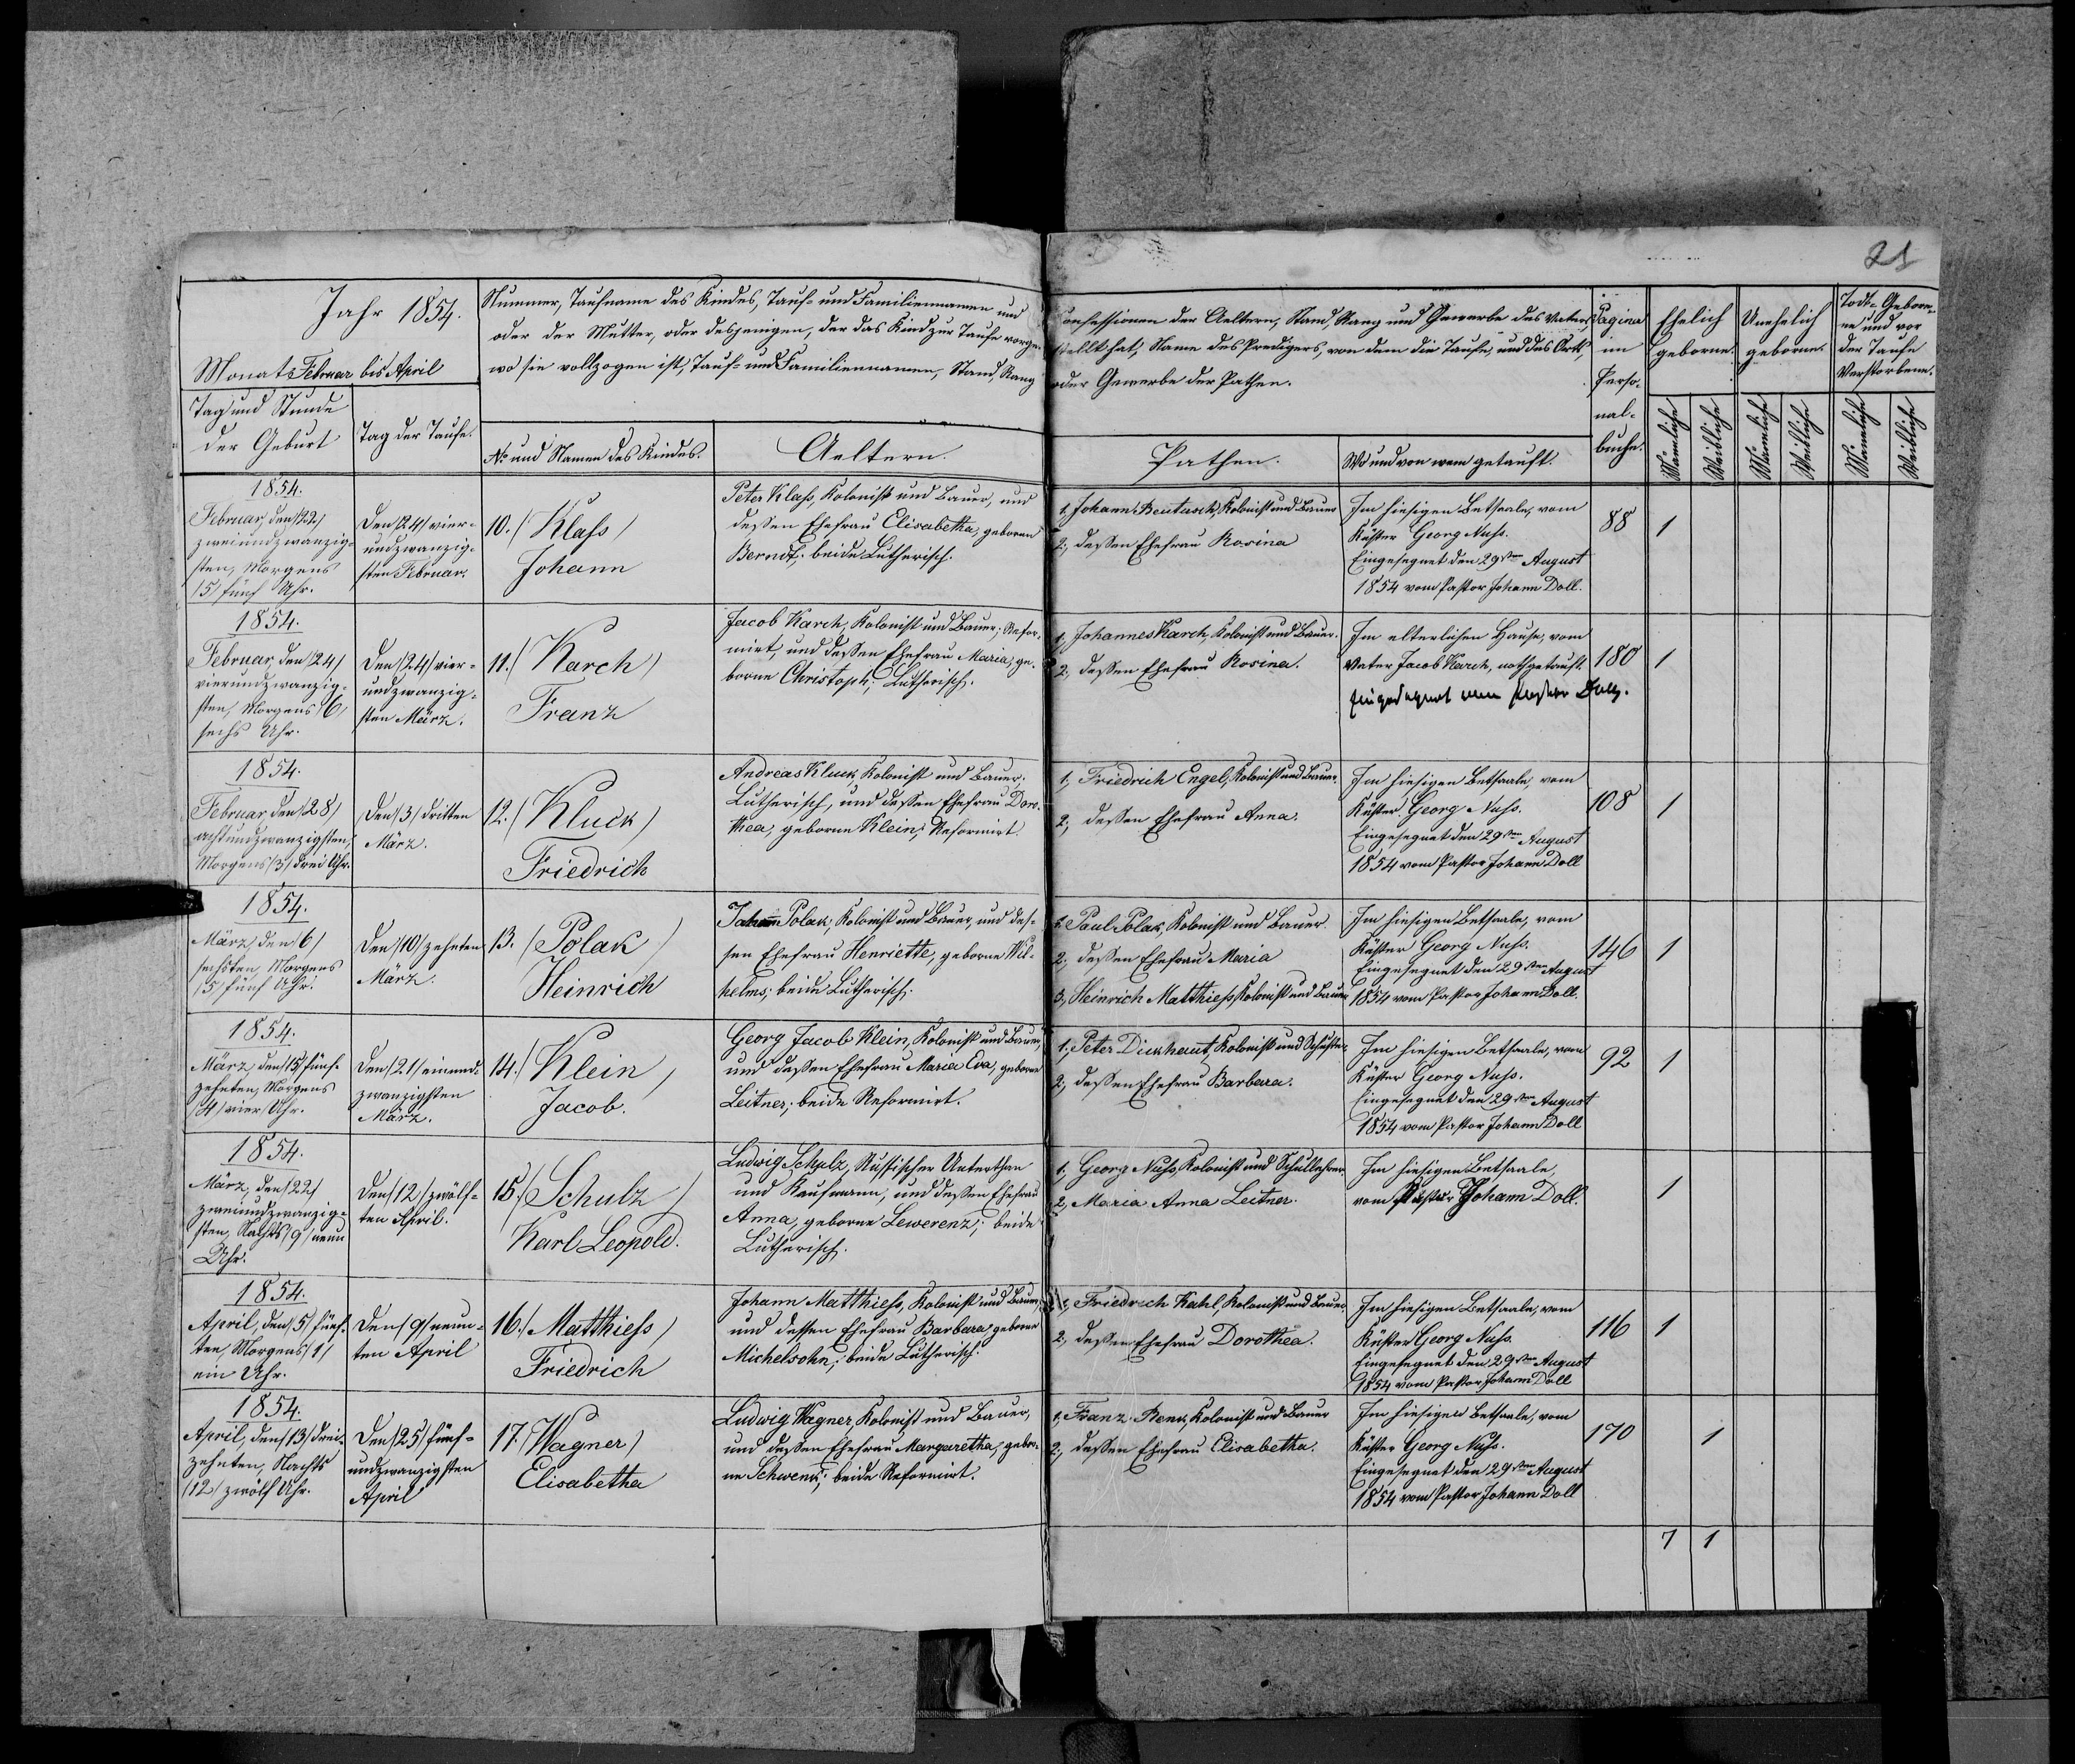 21
Jahr 1854.
Monats Februar bis April
Nummer, Taufname des Kindes, Tauf- und Familiennamen und
oder der Mutter, oder desjenigen, der das Kind zur Taufe vorge-
wo sie vollzogen ist, Tauf- und Familiennamen, Stand, Rang
Confessionen der Aeltern, Stand, Rang und Gewerbe des Vaters,
stellt hat, Name des Predigers, von dem die Taufe, und des Orts,
oder Gewerbe der Pathen.
Pagina
im
Perso-
nal-
buche.
Ehelich
geborne.
Unehelich
geborne.
Todt-Gebore-
ne und vor
der Taufe
Verstorbene.
Tag und Stunde
der Geburt
Tag der Taufe.
No und Namen des Kindes.
Aeltern.
Pathen.
Wo und von wem getauft.
Männliche
Weibliche
Männliche
Weibliche
Männliche
Weibliche
1854.
Februar, den /22/
zweiundzwanzig-
sten, Morgens
/5/ fünf Uhr.
Den /24/ vier-
undzwanzig-
sten Februar.
10. / Klaß /
Johann
Peter Klaß, Kolonist und Bauer, und
dessen Ehefrau Elisabetha, geborene
Berndt; beide Lutherisch.
1, Johann Beutusch, Kolonist und Bauer
2, dessen Ehefrau Rosina
Im hiesigen Betsaale, vom
Küster Georg Nuss.
Eingesegnet den 29sten August
1854 vom Pastor Johann Doll.
88
1
1854.
Februar, den /24/
vierundzwanzig-
sten, Morgens /6/
sechs Uhr.
Den /24/ vier-
undzwanzig-
sten März.
11. / Karch /
Franz
Jacob Karch, Kolonist und Bauer; Refor-
mirt, und dessen Ehefrau Maria, ge-
borne Christoph; Lutherisch.
1, Johannes Karch, Kolonist und Bauer.
2, dessen Ehefrau Rosina.
Im elterlichen Hause, vom
Vater Jacob Karch, nothgetauft.
Eingesegnet vom Pastor Doll.
180
1
1854.
Februar, den /28/
achtundzwanzigsten,
Morgens /3/ drei Uhr.
Den /3/ dritten
März.
12. / Kluck /
Friedrich
Andreas Kluck, Kolonist und Bauer.
Lutherisch, und dessen Ehefrau Doro-
thea, geborne Klein; Reformirt
1, Friedrich Engel, Kolonist und Bauer.
2, dessen Ehefrau Anna.
Im hiesigen Betsaale, vom
Küster Georg Nuss.
Eingesegnet den 29sten August
1854 vom Pastor Johann Doll
108
1
1854.
März, den /6/
sechsten, Morgens
/5/ fünf Uhr.
Den /10/ zehnten
März.
13. / Polak /
Heinrich
Johann Polak, Kolonist und Bauer, und des-
sen Ehefrau Henriette, geborne Wil-
helms; beide Lutherisch.
1, Paul Polak, Kolonist und Bauer
2, dessen Ehefrau Maria
3, Heinrich Matthieß, Kolonist und Bauer
Im hiesigen Betsaale, vom
Küster Georg Nuss.
Eingesegnet den 29sten August
1854 vom Pastor Johann Doll.
146
1
1854.
März, den /15/ fünf-
zehnten, Morgens
/4/ vier Uhr.
Den /21/ einund-
zwanzigsten
März.
14. / Klein /
Jacob.
Georg Jacob Klein, Kolonist und Bauer,
und dessen Ehefrau Maria Eva, geborne
Leitner; beide Reformirt.
1, Peter Dickhaut, Kolonist und Schuster
2, dessen Ehefrau Barbara.
Im hiesigen Betsaale, vom
Küster Georg Nuss.
Eingesegnet den 29sten August
1854 vom Pastor Johann Doll
92
1
1854.
März, den /22/
zweiundzwanzig-
sten, Nachts /9/ neun
Uhr.
Den /12/ zwölf-
ten April.
15. / Schulz /
Karl Leopold.
Ludwig Schulz, Russischer Unterthan
und Kaufmann, und dessen Ehefrau
Anna, geborne Lewerenz; beide
Lutherisch.
1, Georg Nuss, Kolonist und Schullehrer
2, Maria Anna Leitner.
Im hiesigen Betsaale,
vom Pastor Johann Doll.
1
1854.
April, den /5/ fünf-
ten, Morgens /1/
ein Uhr.
Den /9/ neun-
ten April
16. / Matthieß /
Friedrich
Johann Matthieß, Kolonist und Bauer,
und dessen Ehefrau Barbara, geborne
Michelsohn; beide Lutherisch.
1, Friedrich Kahl, Kolonist und Bauer
2, dessen Ehefrau Dorothea.
Im hiesigen Betsaale, vom
Küster Georg Nuss.
Eingesegnet den 29sten August
1854 vom Pastor Johann Doll
116
1
1854.
April, den /13/ drei-
zehnten, Nachts
/12/ zwölf Uhr.
Den /25/ fünf-
undzwanzigsten
April
17. / Wagner /
Elisabetha
Ludwig Wagner, Kolonist und Bauer,
und dessen Ehefrau Margaretha, gebor-
ne Schwenk; beide Reformirt.
1, Franz Renk, Kolonist und Bauer
2, dessen Ehefrau Elisabetha.
Im hiesigen Betsaale, vom
Küster Georg Nuss.
Eingesegnet den 29sten August
1854 vom Pastor Johann Doll
170
1
7 1